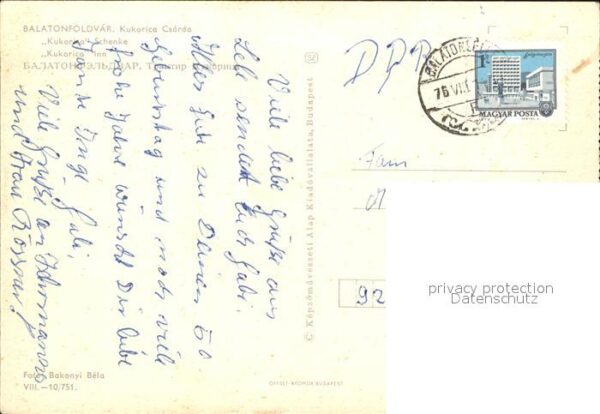 BALATONFÖLDVÁR. Kukorica Csárda
„Kukorica" Schenke
„Kukorica" Inn
БАЛАТОНФЭЛЬДВАР.
Viele liebe Grüße aus
sendet Euch Gabi.
Alles Gute zu Deinem 50
Geburtstag und noch viele
frohe Jahre wünscht Dir liebe
Tante Inge Gabi.
Viele Grüße an
und Frau
Foto: Bakonyi Béla
VIII.—10/751.
© Képzőművészeti Alap Kiadóvállalata, Budapest
OFFSET-NYOMDA BUDAPEST
DDR
76 VII.
MAGYAR POSTA
Fam
92
privacy protection
Datenschutz